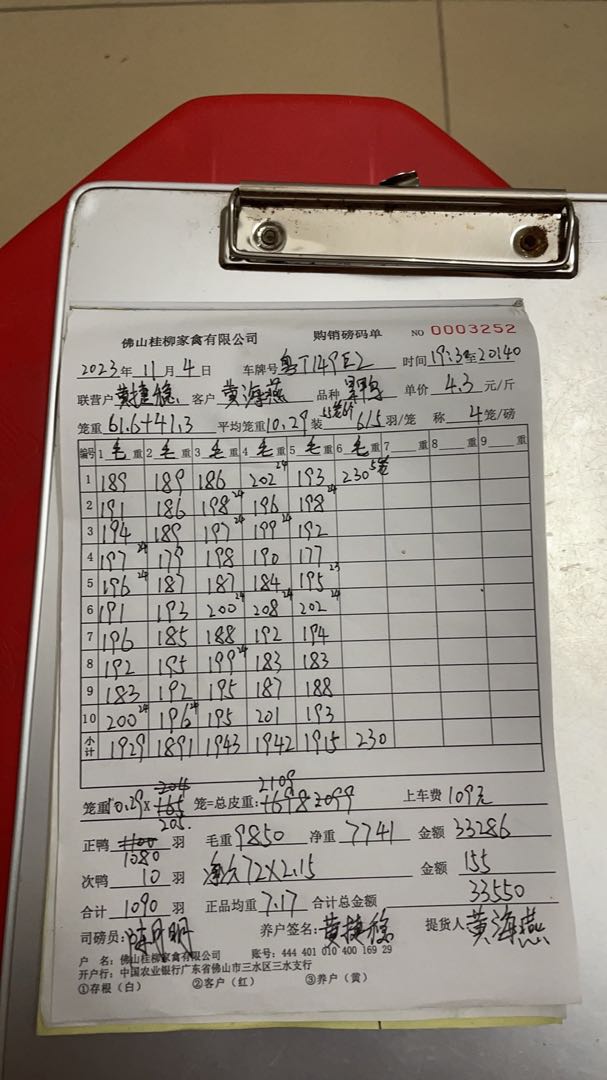 佛山桂柳家禽有限公司 购销磅码单 NO 0003252
2023年 11月 4日 车牌号 粤T149E2 时间 19:3至20140
联营户 黄捷稳 客户 黄海燕 品种 单价 4.3 元/斤
笼重 61.6+41.3 平均笼重 10.29 装 6/5 羽/笼 称 4 笼/磅
编号 1 毛 重 2 毛 重 3 毛 重 4 毛 重 5 毛 重 6 毛 重 7 重 8 重 9 重
1 189 189 186 202 24 193 230 5笼
2 191 186 198 24 196 198 24
3 194 189 197 24 199 24 192
4 197 24 179 198 190 177
5 196 24 187 187 184 195 23
6 191 193 200 24 208 24 202 24
7 196 185 188 192 194
8 192 195 199 24 183 183
9 183 192 195 187 188
10 200 24 196 24 195 201 193
小计 1929 1891 1943 1942 1915 230
204 2109
笼重 10.29 × 165 笼=总皮重: 1698 2099 上车费 109元
205.
正鸭 1100 羽 毛重 9850 净重 7741 金额 33286
1080
次鸭 10 羽 72×2.15 金额 155
合计 1090 羽 正品均重 7.17 合计总金额 33550
司磅员: 养户签名: 黄捷稳 提货人 黄海燕
户 名: 佛山桂柳家禽有限公司 账号: 444 401 010 400 169 29
开户行: 中国农业银行广东省佛山市三水区三水支行
①存根(白) ②客户(红) ③养户(黄)